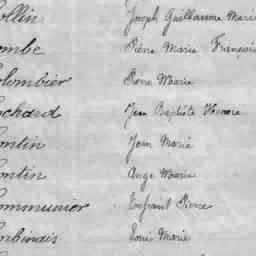 ollin Joseph Guillaume Marie
ombe Pierre Marie François
olombier Pierre Marie
ochard Jean Baptiste Honoré
ontin Jean Marie
ontin Ange Marie
ommunier Enfrant Pierre
orbindis Louis Marie